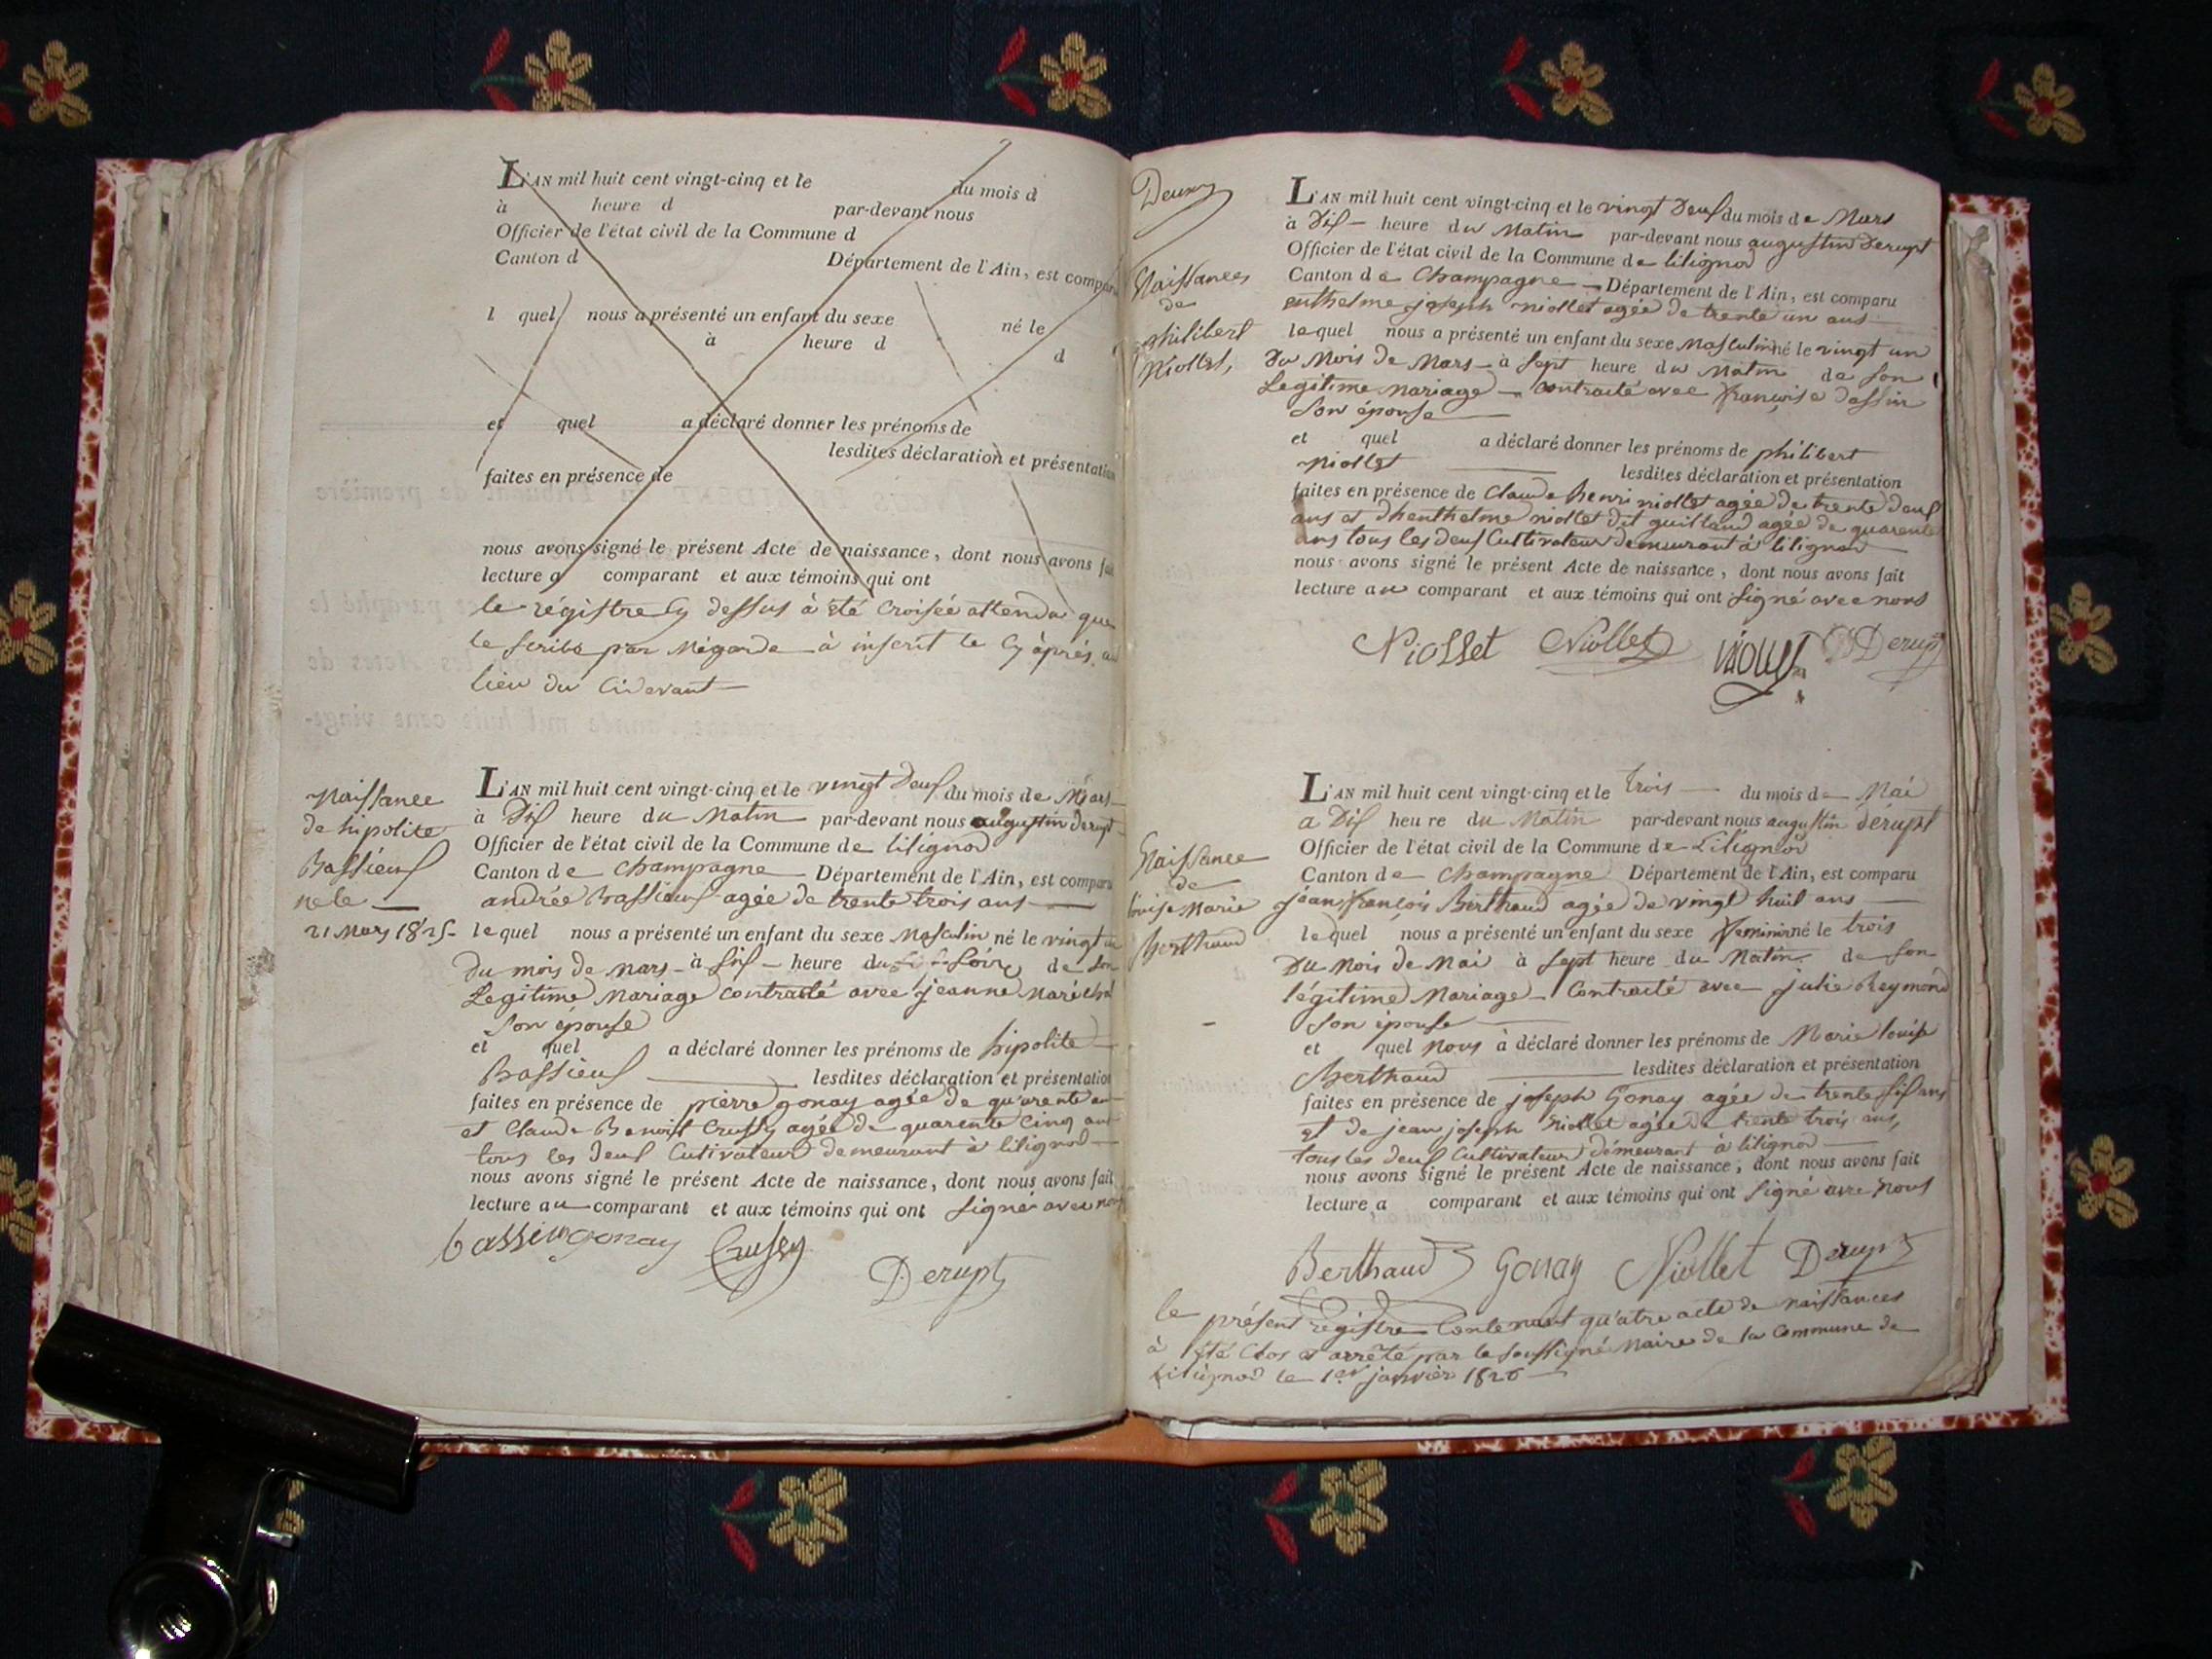 L'AN mil huit cent vingt-cinq et le du mois d
à heure d par-devant nous
Officier de l'état civil de la Commune d
Canton d Département de l'Ain, est comparu
l quel nous a présenté un enfant du sexe né le
à heure d d
et quel a déclaré donner les prénoms de
lesdites déclaration et présentation
faites en présence de
nous avons signé le présent Acte de naissance, dont nous avons fait
lecture a comparant et aux témoins qui ont
le régistre Cy dessus à été Croisée attendu que
le scribe par Mégarde à inscrit le Cy àprés au
lieu du Cidevant
Naissance
de hipolite
Bassieux
né le
21 Mars 1825
L'AN mil huit cent vingt-cinq et le vingt Deux du mois de Mars
à Dix heure du Matin par-devant nous augustin derupt
Officier de l'état civil de la Commune de lilignod
Canton de Champagne Département de l'Ain, est comparu
andrée Bassieux agée de trente trois ans
lequel nous a présenté un enfant du sexe Masculin né le vingt un
Du mois de Mars à Six heure du Soir de son
Legitime Mariage contracté avec jeanne Maréchal
Son épouse
et quel a déclaré donner les prénoms de hipolite
Bassieux lesdites déclaration et présentation
faites en présence de pierre gonay agée de qu'arente ans
et Claude Benoist Crussy agée de quarente Cinq ans
tous les Deux Cutivateur demeurant à lilignod
nous avons signé le présent Acte de naissance, dont nous avons fait
lecture au comparant et aux témoins qui ont Signé avec nous
bassieu gonay Crussy
Derupt
Deux
Naissances
de
philibert
Niollet,
L'AN mil huit cent vingt-cinq et le vingt Deux du mois de Mars
à Dix heure du Matin par-devant nous augustin Derupt
Officier de l'état civil de la Commune de lilignod
Canton de Champagne Département de l'Ain, est comparu
enthelme joseph niollet agée de trente un ans
lequel nous a présenté un enfant du sexe Masculin né le vingt un
Du Mois de Mars à Sept heure du Matin de Son
Legitime Mariage contracté avec françoise dassin
Son épouse
et quel a déclaré donner les prénoms de philibert
niollet lesdites déclaration et présentation
faites en présence de Claude henri niollet agée de trente deux
ans et Dhenthelme niollet dit guilland agée de quarente
ans tous les deux Cultivateur demeurant à lilignod
nous avons signé le présent Acte de naissance, dont nous avons fait
lecture au comparant et aux témoins qui ont Signé avec nous
Niollet Niollet niollet Derupt
Naissance
de
louise Marie
Berthaud
L'AN mil huit cent vingt-cinq et le trois du mois de Mai
a Dix heure du Matin par-devant nous augustin dérupt
Officier de l'état civil de la Commune de Lilignod
Canton de Champagne Département de l'Ain, est comparu
jean françois Berthaud agée de vingt huit ans
lequel nous a présenté un enfant du sexe feminin né le trois
Du Mois de Mai à Sept heure du Matin de Son
légitime Mariage Contracté avec julie Reymond
Son épouse
et quel nous à déclaré donner les prénoms de Marie louise
Berthaud lesdites déclaration et présentation
faites en présence de joseph Gonay agée de trente six ans
et de jean joseph Niollet agée de trente trois ans,
tous les deux Cultivateur démeurant à lilignod
nous avons signé le présent Acte de naissance, dont nous avons fait
lecture a comparant et aux témoins qui ont Signé avec nous
Berthaud Gonay Niollet Derupt
le présent régistre Contenant qu'atre acte de naissances
à été Clos et arrêté par le Soussigné Maire de la Commune de
Lilignod le 1er janvier 1826